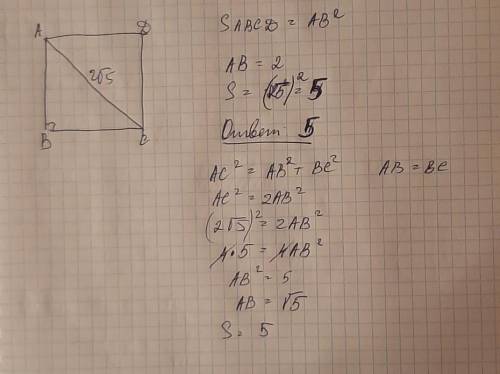 A
D
2√5
B
C
S ABCD = AB²
AB = 2
S = (√5)² = 5
Ответ 5
AC² = AB² + BC² AB = BC
AC² = 2AB²
(2√5)² = 2AB²
4·5 = 4AB²
AB² = 5
AB = √5
S = 5